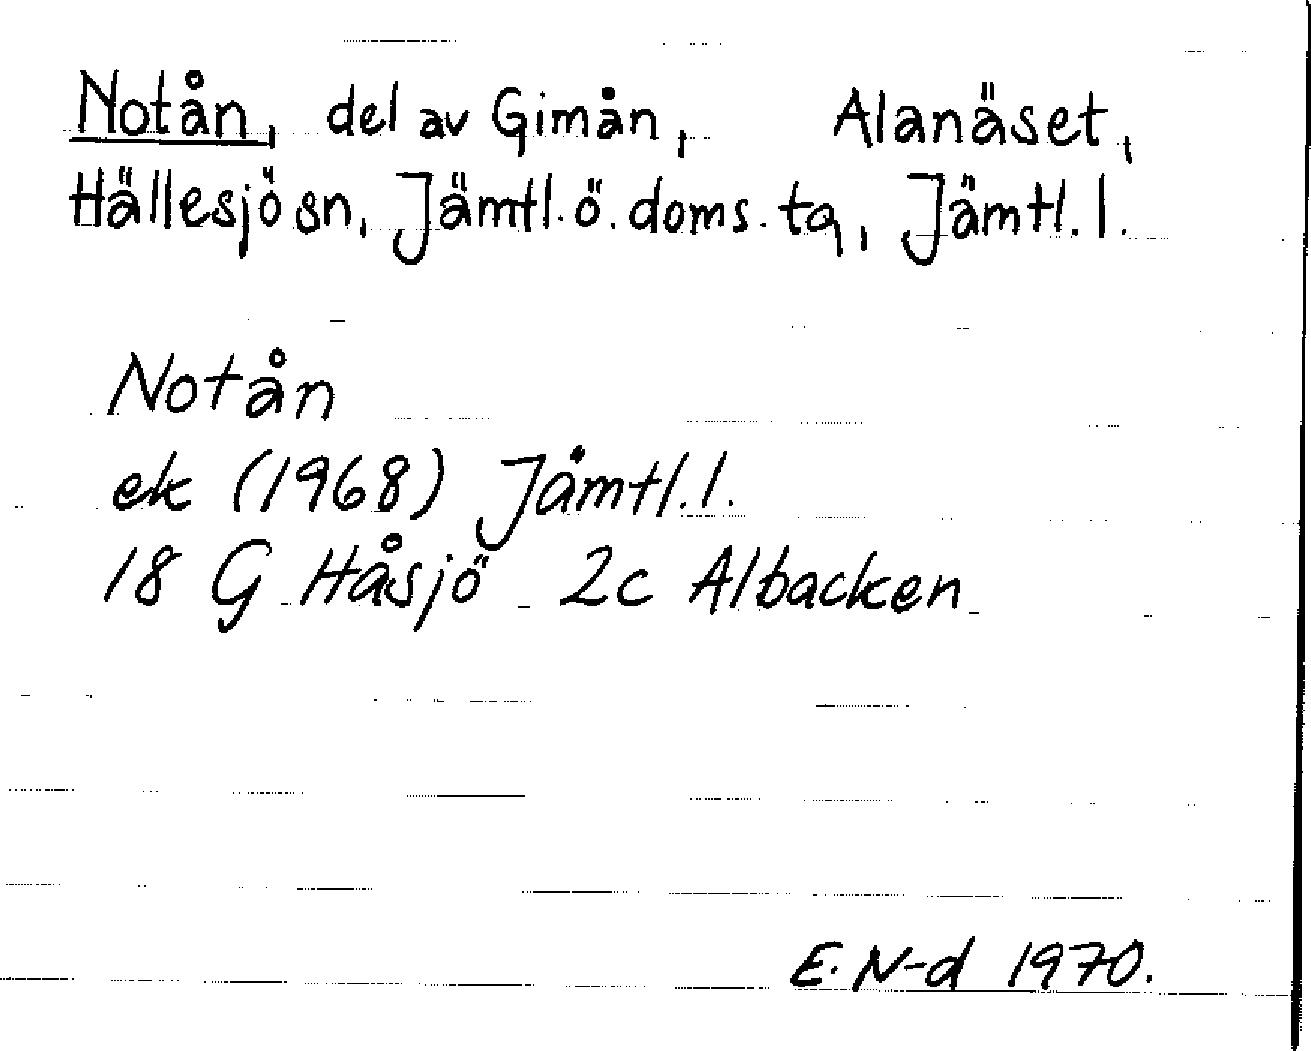 Notån, del av Gimån, Alanäset,
Hällesjö sn, Jämtl. ö. doms. tg, Jämtl. l.
Notån
ek (1968) Jämtl. l.
18 G Håsjö 2c Albacken
E. N-d 1970.